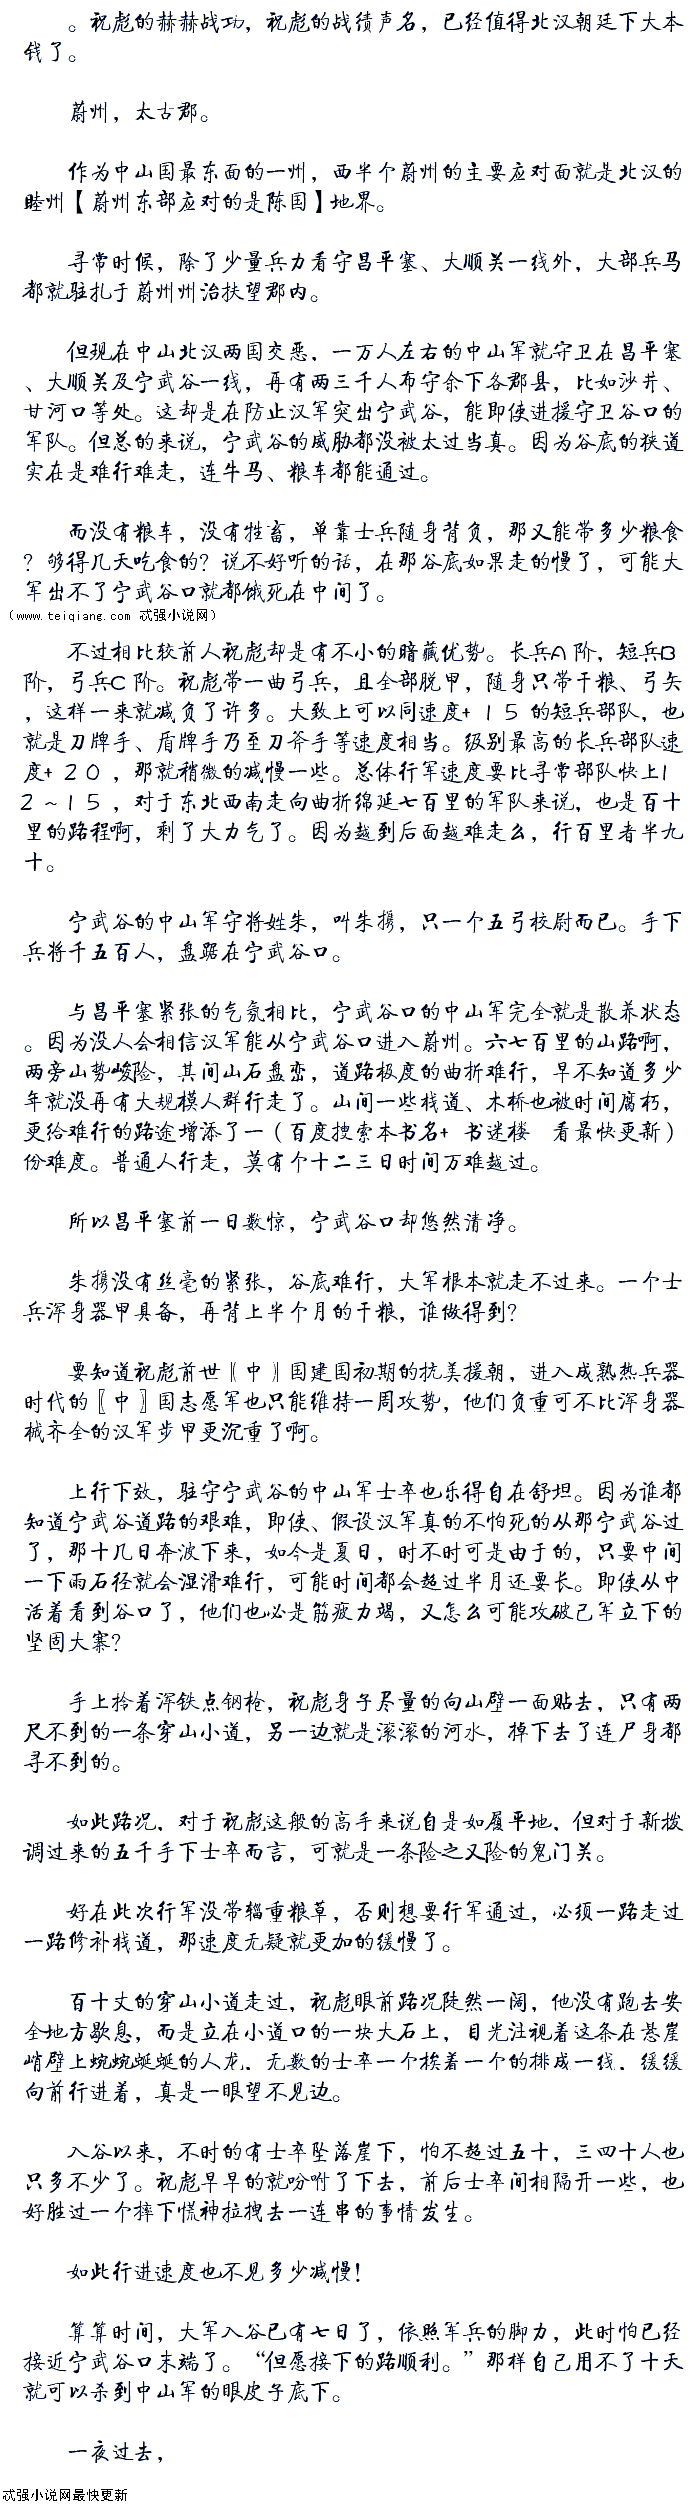 。祝彪的赫赫战功，祝彪的战绩声名，已经值得北汉朝廷下大本
钱了。
蔚州，太古郡。
作为中山国最东面的一州，西半个蔚州的主要应对面就是北汉的
睦州【蔚州东部应对的是陈国】地界。
寻常时候，除了少量兵力看守昌平塞、大顺关一线外，大部兵马
都就驻扎于蔚州州治扶望郡内。
但现在中山北汉两国交恶，一万人左右的中山军就守卫在昌平塞
、大顺关及宁武谷一线，再有两三千人布守余下各郡县，比如沙井、
甘河口等处。这却是在防止汉军突出宁武谷，能即使进援守卫谷口的
军队。但总的来说，宁武谷的威胁都没被太过当真。因为谷底的狭道
实在是难行难走，连牛马、粮车都能通过。
而没有粮车，没有牲畜，单靠士兵随身背负，那又能带多少粮食
？够得几天吃食的？说不好听的话，在那谷底如果走的慢了，可能大
军出不了宁武谷口就都饿死在中间了。
（www.teiqiang.com 忒强小说网）
不过相比较前人祝彪却是有不小的暗藏优势。长兵A阶，短兵B
阶，弓兵C阶。祝彪带一曲弓兵，且全部脱甲，随身只带干粮、弓矢
，这样一来就减负了许多。大致上可以同速度+15的短兵部队，也
就是刀牌手、盾牌手乃至刀斧手等速度相当。级别最高的长兵部队速
度+20，那就稍微的减慢一些。总体行军速度要比寻常部队快上1
2～15，对于东北西南走向曲折绵延七百里的军队来说，也是百十
里的路程啊，剩了大力气了。因为越到后面越难走么，行百里者半九
十。
宁武谷的中山军守将姓朱，叫朱携，只一个五弓校尉而已。手下
兵将千五百人，盘踞在宁武谷口。
与昌平塞紧张的气氛相比，宁武谷口的中山军完全就是散养状态
。因为没人会相信汉军能从宁武谷口进入蔚州。六七百里的山路啊，
两旁山势峻险，其间山石盘峦，道路极度的曲折难行，早不知道多少
年就没再有大规模人群行走了。山间一些栈道、木桥也被时间腐朽，
更给难行的路途增添了一（百度搜索本书名+ 书迷楼　看最快更新）
份难度。普通人行走，莫有个十二三日时间万难越过。
所以昌平塞前一日数惊，宁武谷口却悠然清净。
朱携没有丝毫的紧张，谷底难行，大军根本就走不过来。一个士
兵浑身器甲具备，再背上半个月的干粮，谁做得到？
要知道祝彪前世〖中〗国建国初期的抗美援朝，进入成熟热兵器
时代的〖中〗国志愿军也只能维持一周攻势，他们负重可不比浑身器
械齐全的汉军步甲更沉重了啊。
上行下效，驻守宁武谷的中山军士卒也乐得自在舒坦。因为谁都
知道宁武谷道路的艰难，即使、假设汉军真的不怕死的从那宁武谷过
了，那十几日奔波下来，如今是夏日，时不时可是由于的，只要中间
一下雨石径就会湿滑难行，可能时间都会超过半月还要长。即使从中
活着看到谷口了，他们也必是筋疲力竭，又怎么可能攻破己军立下的
坚固大寨？
手上拎着浑铁点钢枪，祝彪身子尽量的向山壁一面贴去，只有两
尺不到的一条穿山小道，另一边就是滚滚的河水，掉下去了连尸身都
寻不到的。
如此路况，对于祝彪这般的高手来说自是如履平地，但对于新拨
调过来的五千手下士卒而言，可就是一条险之又险的鬼门关。
好在此次行军没带辎重粮草，否则想要行军通过，必须一路走过
一路修补栈道，那速度无疑就更加的缓慢了。
百十丈的穿山小道走过，祝彪眼前路况陡然一阔，他没有跑去安
全地方歇息，而是立在小道口的一块大石上，目光注视着这条在悬崖
峭壁上蜿蜿蜒蜒的人龙，无数的士卒一个挨着一个的排成一线，缓缓
向前行进着，真是一眼望不见边。
入谷以来，不时的有士卒坠落崖下，怕不超过五十，三四十人也
只多不少了。祝彪早早的就吩咐了下去，前后士卒间相隔开一些，也
好胜过一个摔下慌神拉拽去一连串的事情发生。
如此行进速度也不见多少减慢！
算算时间，大军入谷已有七日了，依照军兵的脚力，此时怕已经
接近宁武谷口末端了。“但愿接下的路顺利。”那样自己用不了十天
就可以杀到中山军的眼皮子底下。
一夜过去，
忒强小说网最快更新